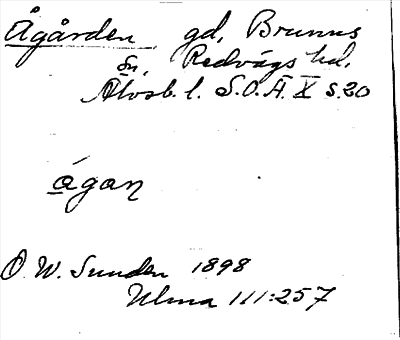 Ågården gd, Brunns
sn, Redvägs hd.
Älvsb. l. S.O.Ä. X s.20
ågaɳ
O. W. Sunden 1898
Ulma 111:257